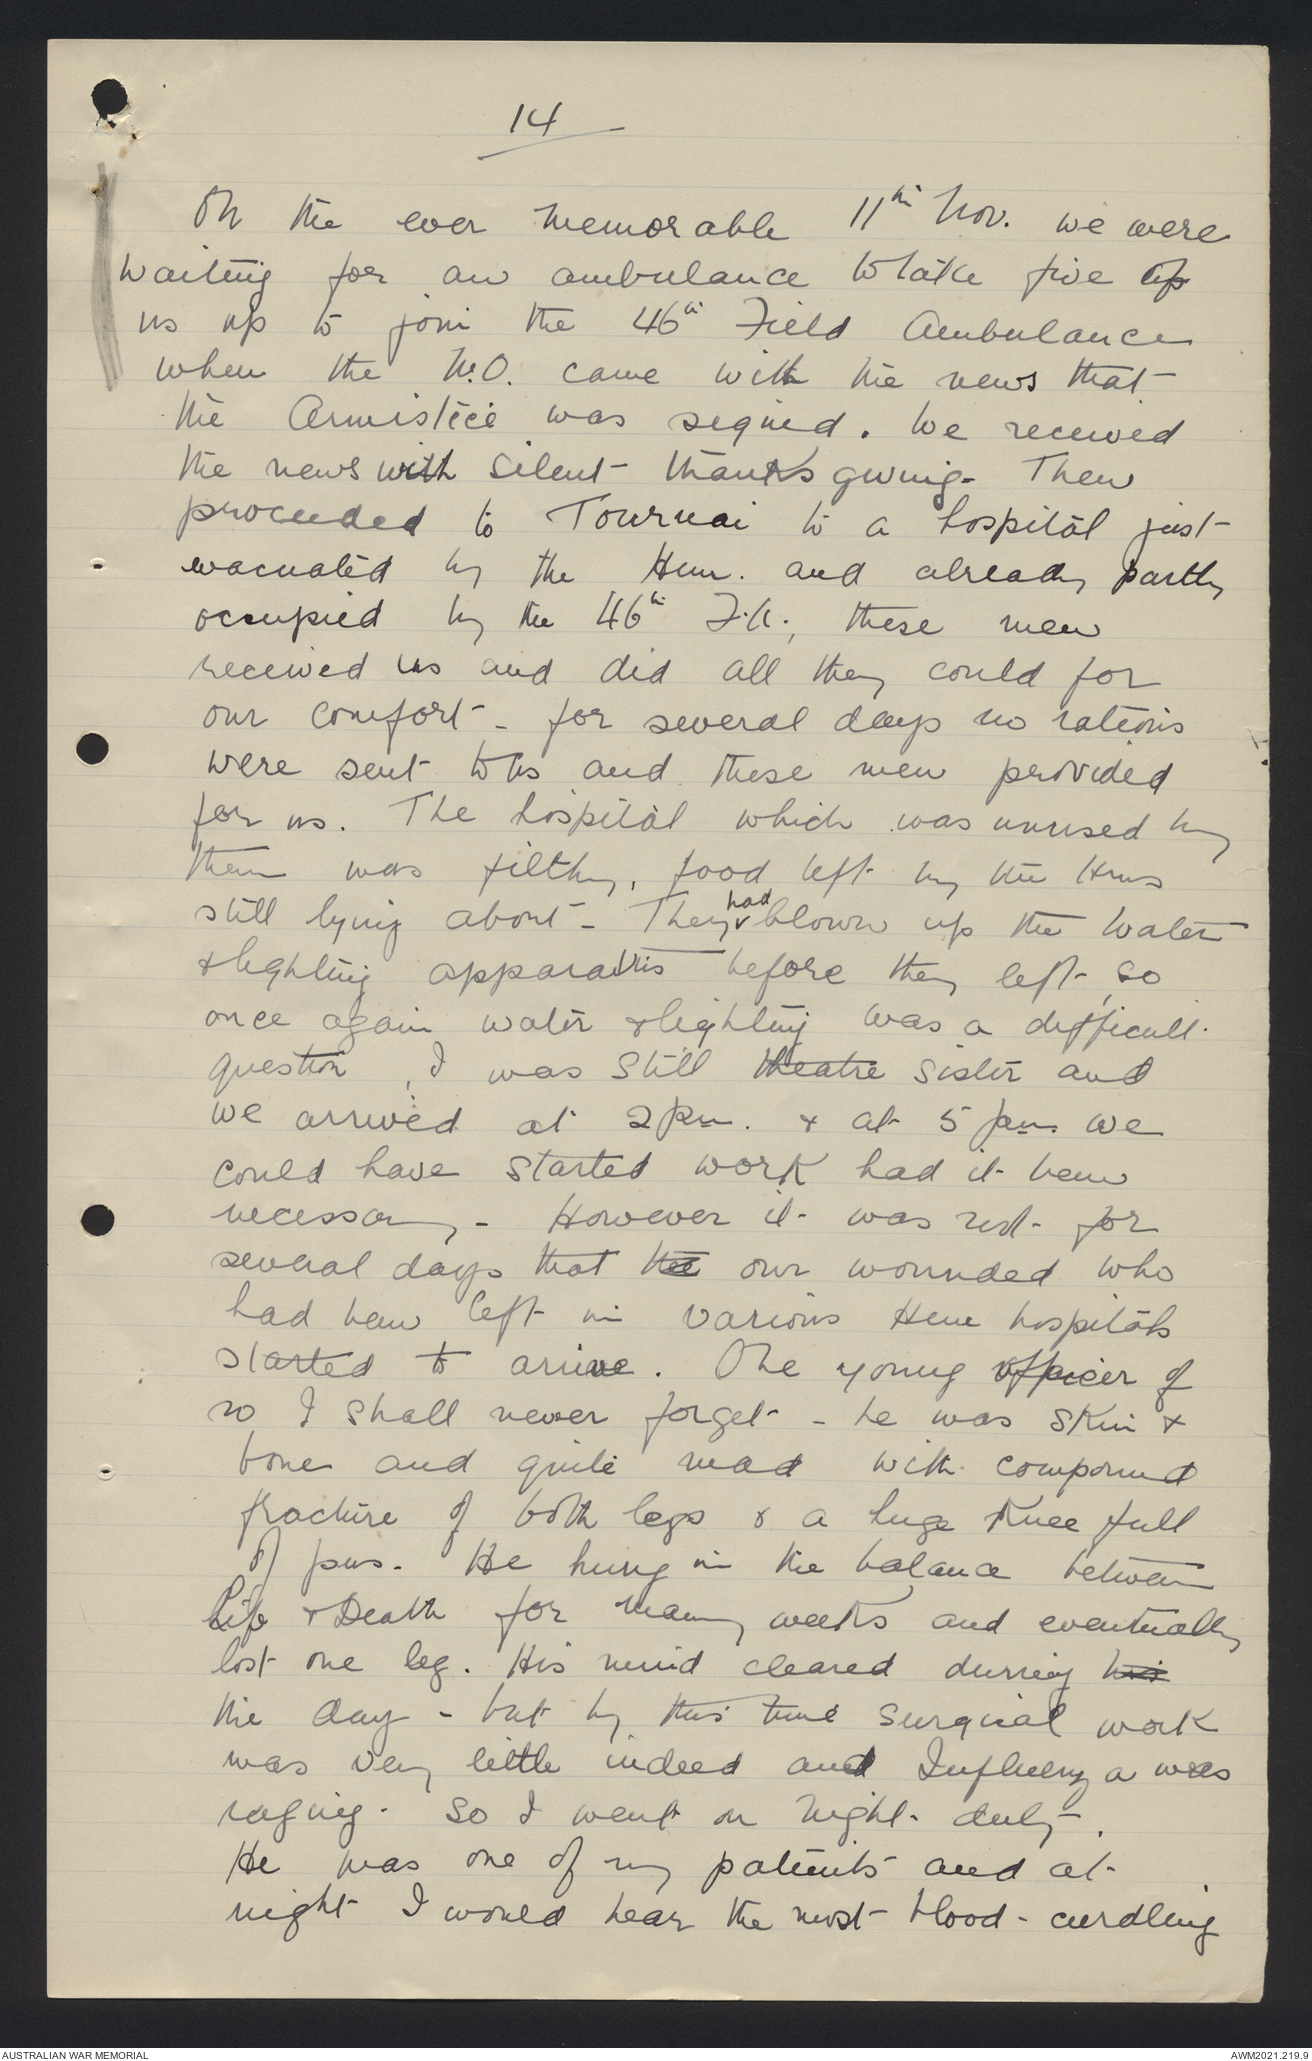 14
On the ever memorable 11th Nov. we were
waiting for an ambulance to take five of
us up to join the 46th Field Ambulance
when the M.O. came with the news that
the Armistice was signed. We received
the news with silent thanksgiving - Then
proceeded to Tournai to a hospital just
evacuated by the Hun. and already partly
occupied by the 46th F.A., these men
received us and did all they could for
our comfort - for several days no rations
were sent to us and these men provided
for us. The hospital which was unused by
them was filthy, food left by the Huns
still lying about - They had blown up the water
& lighting apparatus before they left, so
once again water & lighting was a difficult
question, I was still theatre sister and
we arrived at 2pm. & at 5 pm. we
could have started work had it been
necessary - However it was not for
several days that the our wounded who
had been left in various Hun hospitals
started to arrive. One young officer of
20 I shall never forget - he was skin &
bone and quite mad with compound
fracture of both legs & a huge knee full
of pus. He hung in the balance between
Life & Death for many weeks and eventually
lost one leg. His mind cleared during his
the day - but by this time surgical work
was very little indeed and Influenza was
raging. So I went on night duty.
He was one of my patients and at
night I would hear the most blood-curdling
AUSTRALIAN WAR MEMORIAL
AWM2021.219.9